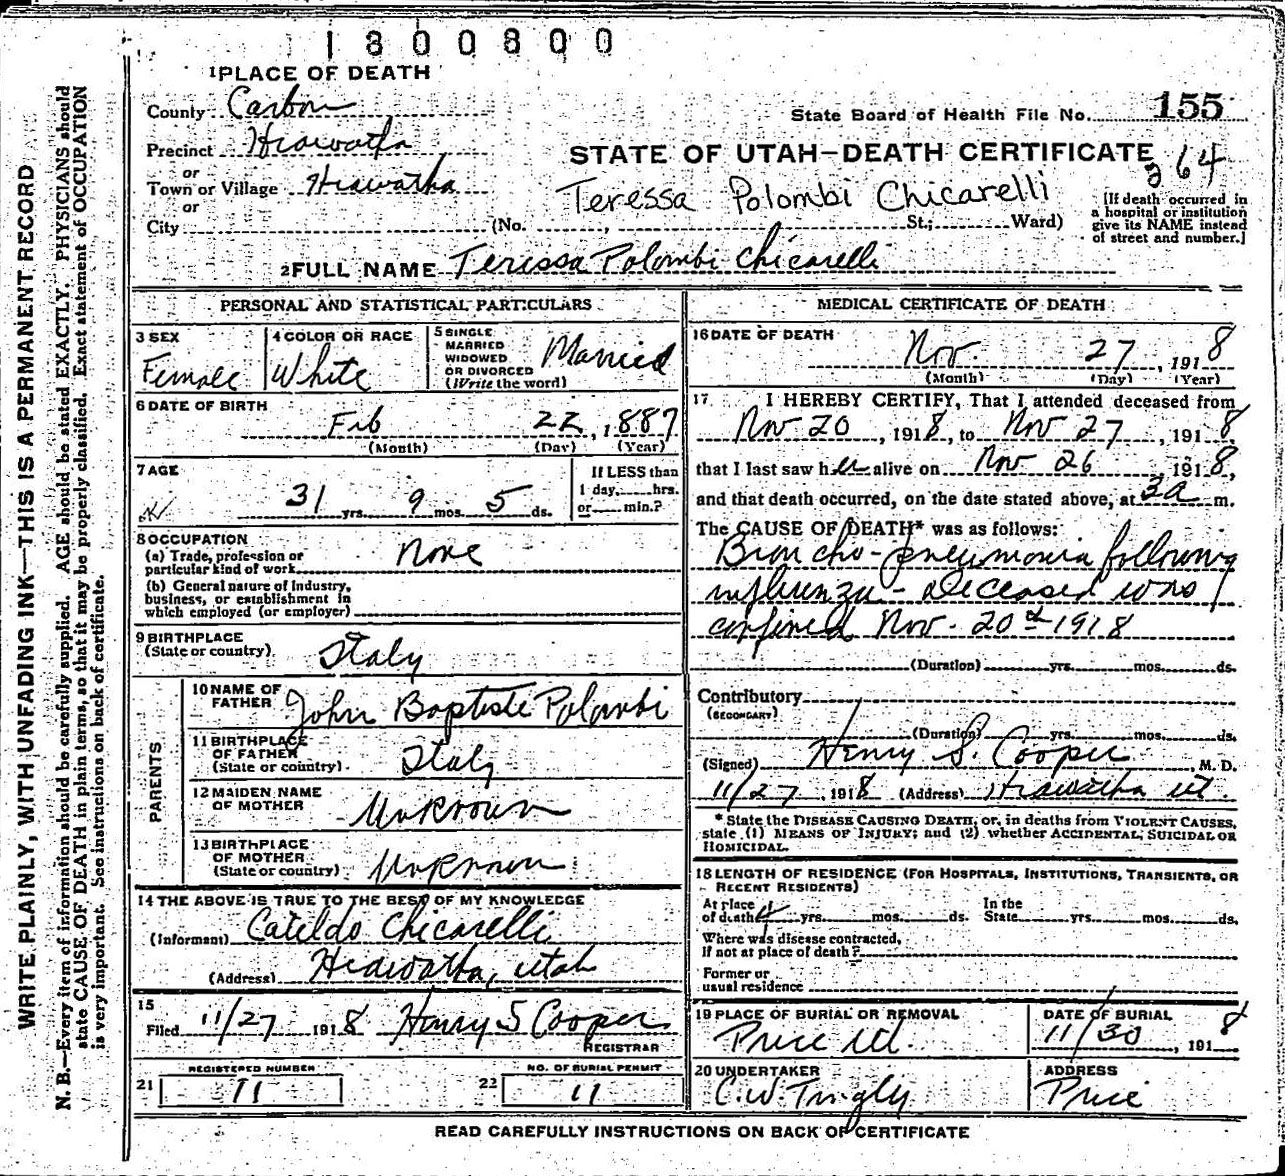 1300800
1 PLACE OF DEATH
County Carbon
Precinct Hiawatha
or
Town or Village Hiawatha
or
City (No. , St.; Ward)
State Board of Health File No. 155
STATE OF UTAH—DEATH CERTIFICATE
264
Teressa Polombi Chicarelli
[If death occurred in
a hospital or institution
give its NAME instead
of street and number.]
2 FULL NAME Teressa Polombi Chicarelli
PERSONAL AND STATISTICAL PARTICULARS
3 SEX
Female
4 COLOR OR RACE
White
5 SINGLE
MARRIED
WIDOWED
OR DIVORCED
(Write the word)
Married
6 DATE OF BIRTH
Feb 22, 1887
(Month) (Day) (Year)
7 AGE
31 yrs. 9 mos. 5 ds.
If LESS than
1 day, hrs.
or min.?
8 OCCUPATION
(a) Trade, profession or
particular kind of work None
(b) General nature of industry,
business, or establishment in
which employed (or employer)
9 BIRTHPLACE
(State or country) Italy
PARENTS
10 NAME OF
FATHER John Baptiste Polombi
11 BIRTHPLACE
OF FATHER
(State or country) Italy
12 MAIDEN NAME
OF MOTHER Unknown
13 BIRTHPLACE
OF MOTHER
(State or country) Unknown
14 THE ABOVE IS TRUE TO THE BEST OF MY KNOWLEDGE
(Informant) Catildo Chicarelli
(Address) Hiawatha, Utah
15
Filed 11/27 1918 Henry S Cooper
REGISTRAR
REGISTERED NUMBER
21 11
NO. OF BURIAL PERMIT
22 11
MEDICAL CERTIFICATE OF DEATH
16 DATE OF DEATH
Nov. 27, 1918
(Month) (Day) (Year)
17 I HEREBY CERTIFY, That I attended deceased from
Nov 20, 1918, to Nov 27, 1918,
that I last saw her alive on Nov 26, 1918,
and that death occurred, on the date stated above, at 3a m.
The CAUSE OF DEATH* was as follows:
Broncho-pneumonia following
influenza - deceased was
confined Nov. 20th 1918
(Duration) yrs. mos. ds.
Contributory
(SECONDARY)
(Duration) yrs. mos. ds.
(Signed) Henry S. Cooper M. D.
11/27, 1918 (Address) Hiawatha Ut.
* State the DISEASE CAUSING DEATH, or, in deaths from VIOLENT CAUSES,
state (1) MEANS OF INJURY; and (2) whether ACCIDENTAL, SUICIDAL OR
HOMICIDAL.
18 LENGTH OF RESIDENCE (FOR HOSPITALS, INSTITUTIONS, TRANSIENTS, OR
RECENT RESIDENTS)
At place
of death yrs. mos. ds.
In the
State yrs. mos. ds.
Where was disease contracted,
if not at place of death?
Former or
usual residence
19 PLACE OF BURIAL OR REMOVAL
Price Ut.
DATE OF BURIAL
11/30, 1918
20 UNDERTAKER
C.W. Tingly
ADDRESS
Price
READ CAREFULLY INSTRUCTIONS ON BACK OF CERTIFICATE
WRITE PLAINLY, WITH UNFADING INK—THIS IS A PERMANENT RECORD
N. B.—Every item of information should be carefully supplied. AGE should be stated EXACTLY. PHYSICIANS should
state CAUSE OF DEATH in plain terms, so that it may be properly classified. Exact statement of OCCUPATION
is very important. See instructions on back of certificate.